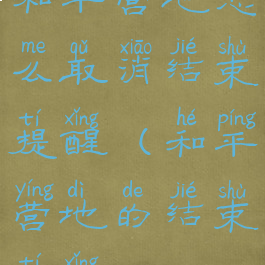 和平营地怎
me qǔ xiāo jié shù
么取消结束
tí xǐng hé píng
提醒(和平
yíng dì de jié shù
营地的结束
tí xǐng